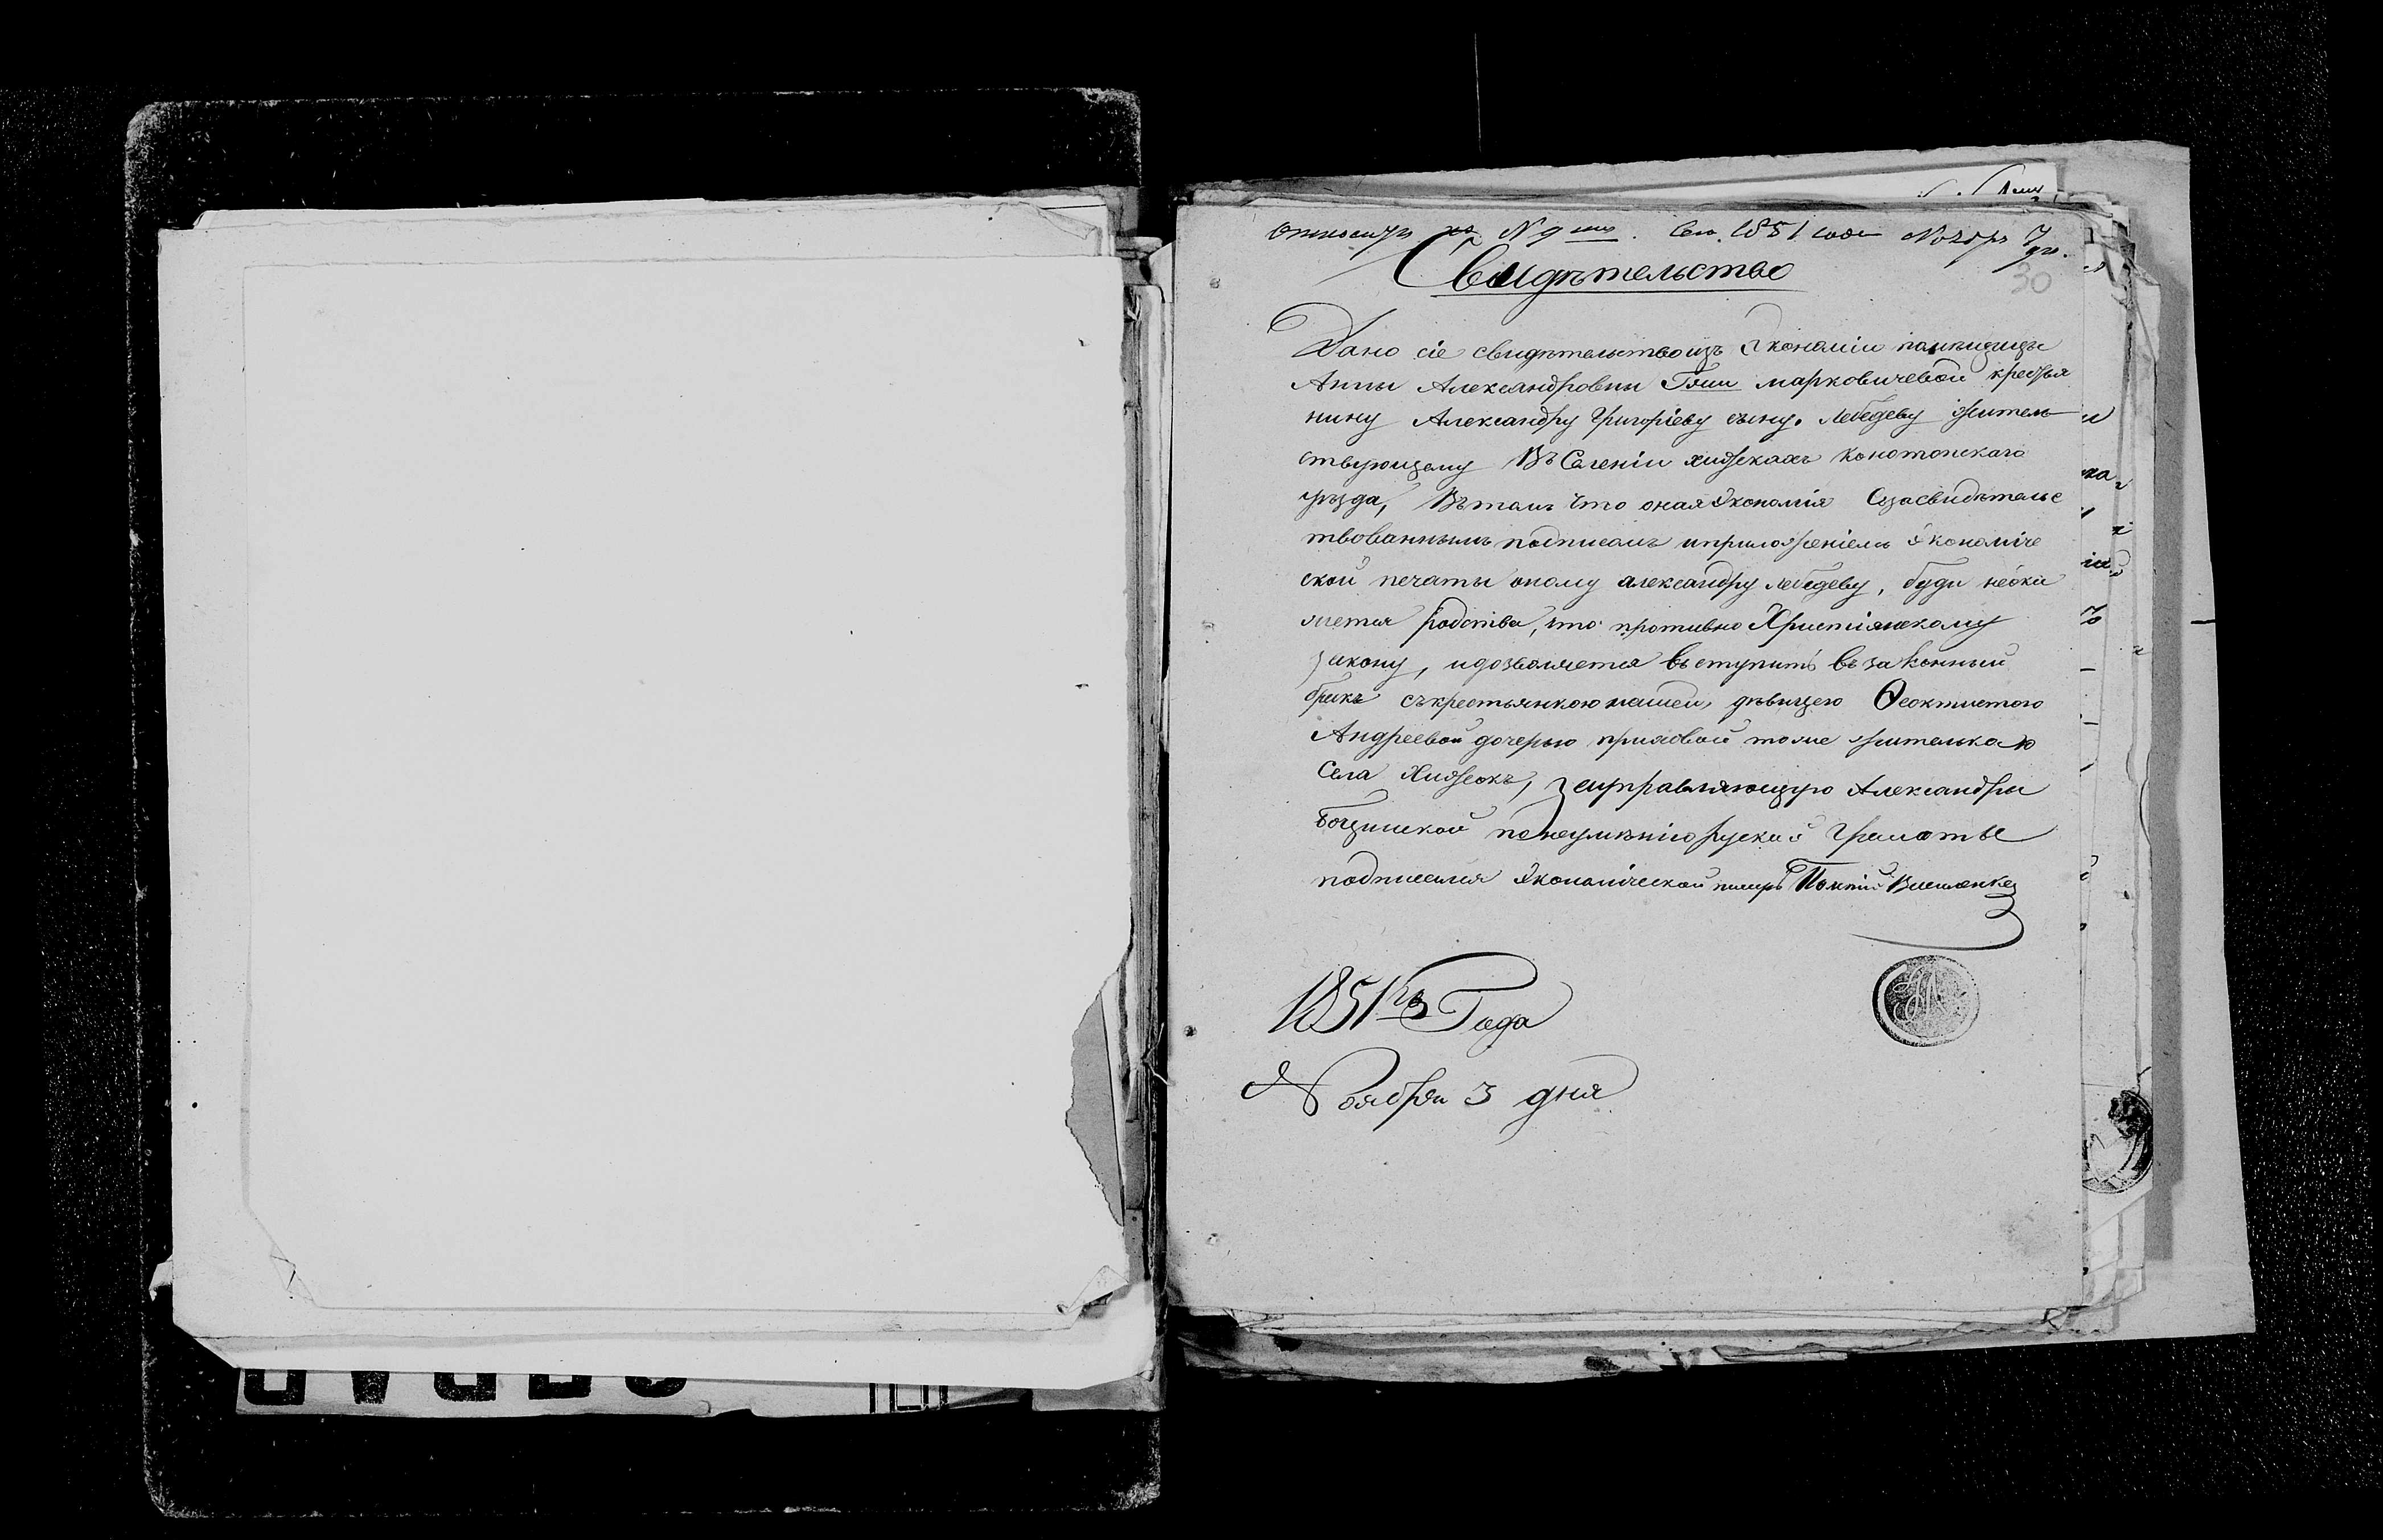 относит. к № 9му. Сего 1851 года Ноября 7 дн.
Свидѣтельство
30
Дано сіе свидѣтельство изъ Экономіи помѣщицы
Анны Александровны Маркoвичевой крестья
нину Александру Григоріеву сыну. Лебедеву житель
ствующему Въ Селеніи хижкахъ Конотопскаго
уѣзда, Вътомъ Что оная Экономія Сзасвидѣтельс
твованнымъ подписомъ иприложеніемъ Экономиче
ской печаты оному александру лебедеву, буди неока
жется родства, что противно Христіянскому
закону, идозволяется вьступить въ законный
бракъ съкрестьянкою нашей дѣвицею Ѳеоктистою
Андреевой дочерью тоже жителькою
Села Хижокъ, зауправляющую Александры
понеумѣнію руской Грамоты
подписался Экономической писарь
1851го Года
Ноября 3 дня